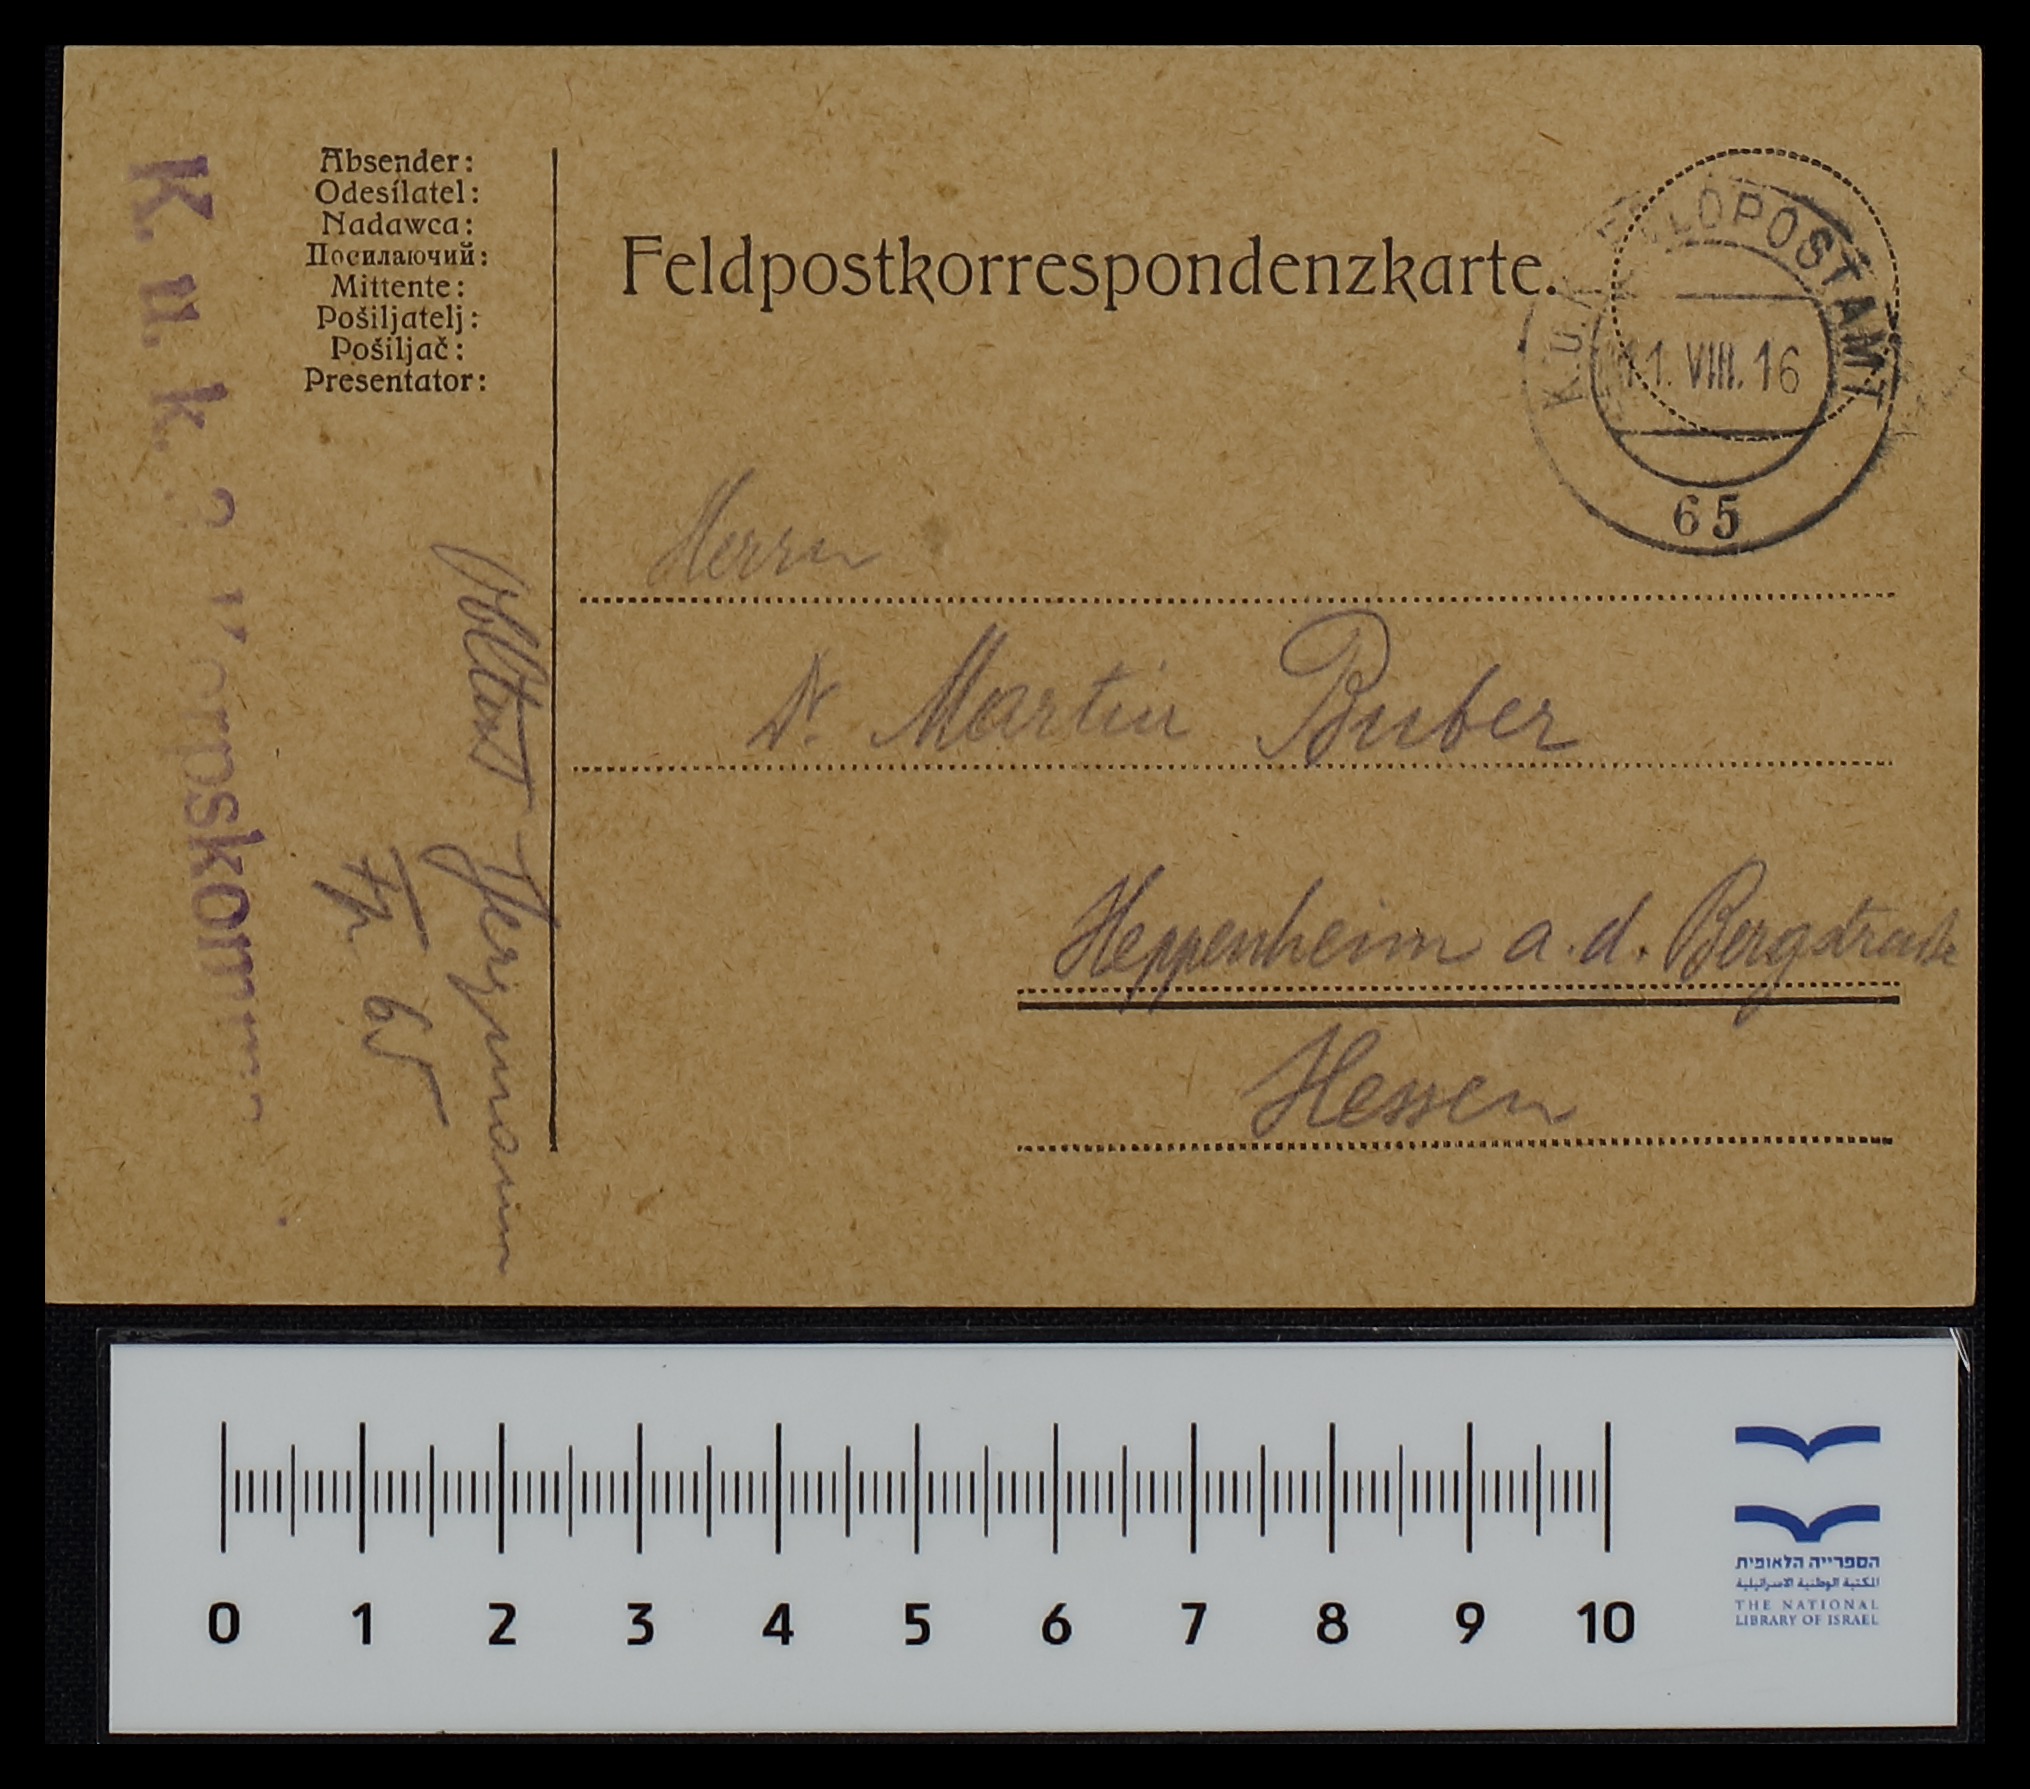 Absender:
Odesílatel:
Nadawca:
Посилаючий:
Mittente:
Pošiljatelj:
Pošiljač:
Presentator:
K. u. k.
Feldpostkorrespondenzkarte.
K.u.K. FELDPOSTAMT
11. VIII. 16
65
Herrn
Dr. Martin Buber
Heppenheim a. d. Bergstraße
Hessen
Fp. 65
0 1 2 3 4 5 6 7 8 9 10
הספרייה הלאומית
المكتبة الوطنية الاسرائيلية
THE NATIONAL
LIBRARY OF ISRAEL